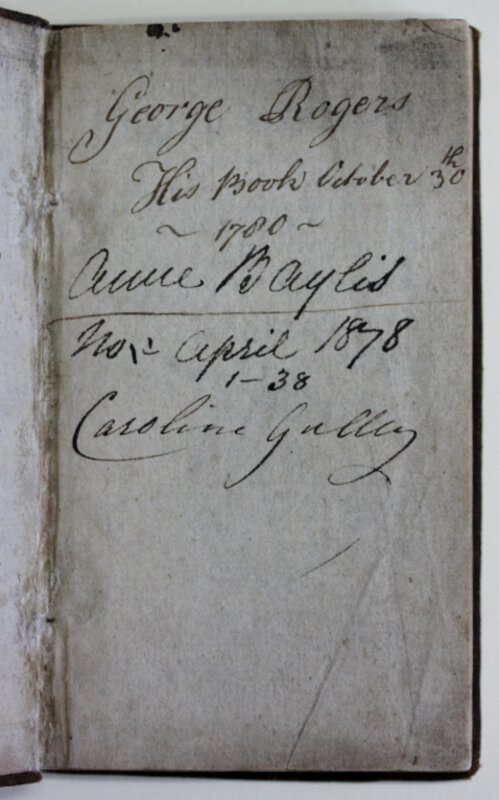 George Rogers
His Book October 30th
~ 1780 ~
Anne Baylis
No 1 - April 1878
1-38
Caroline